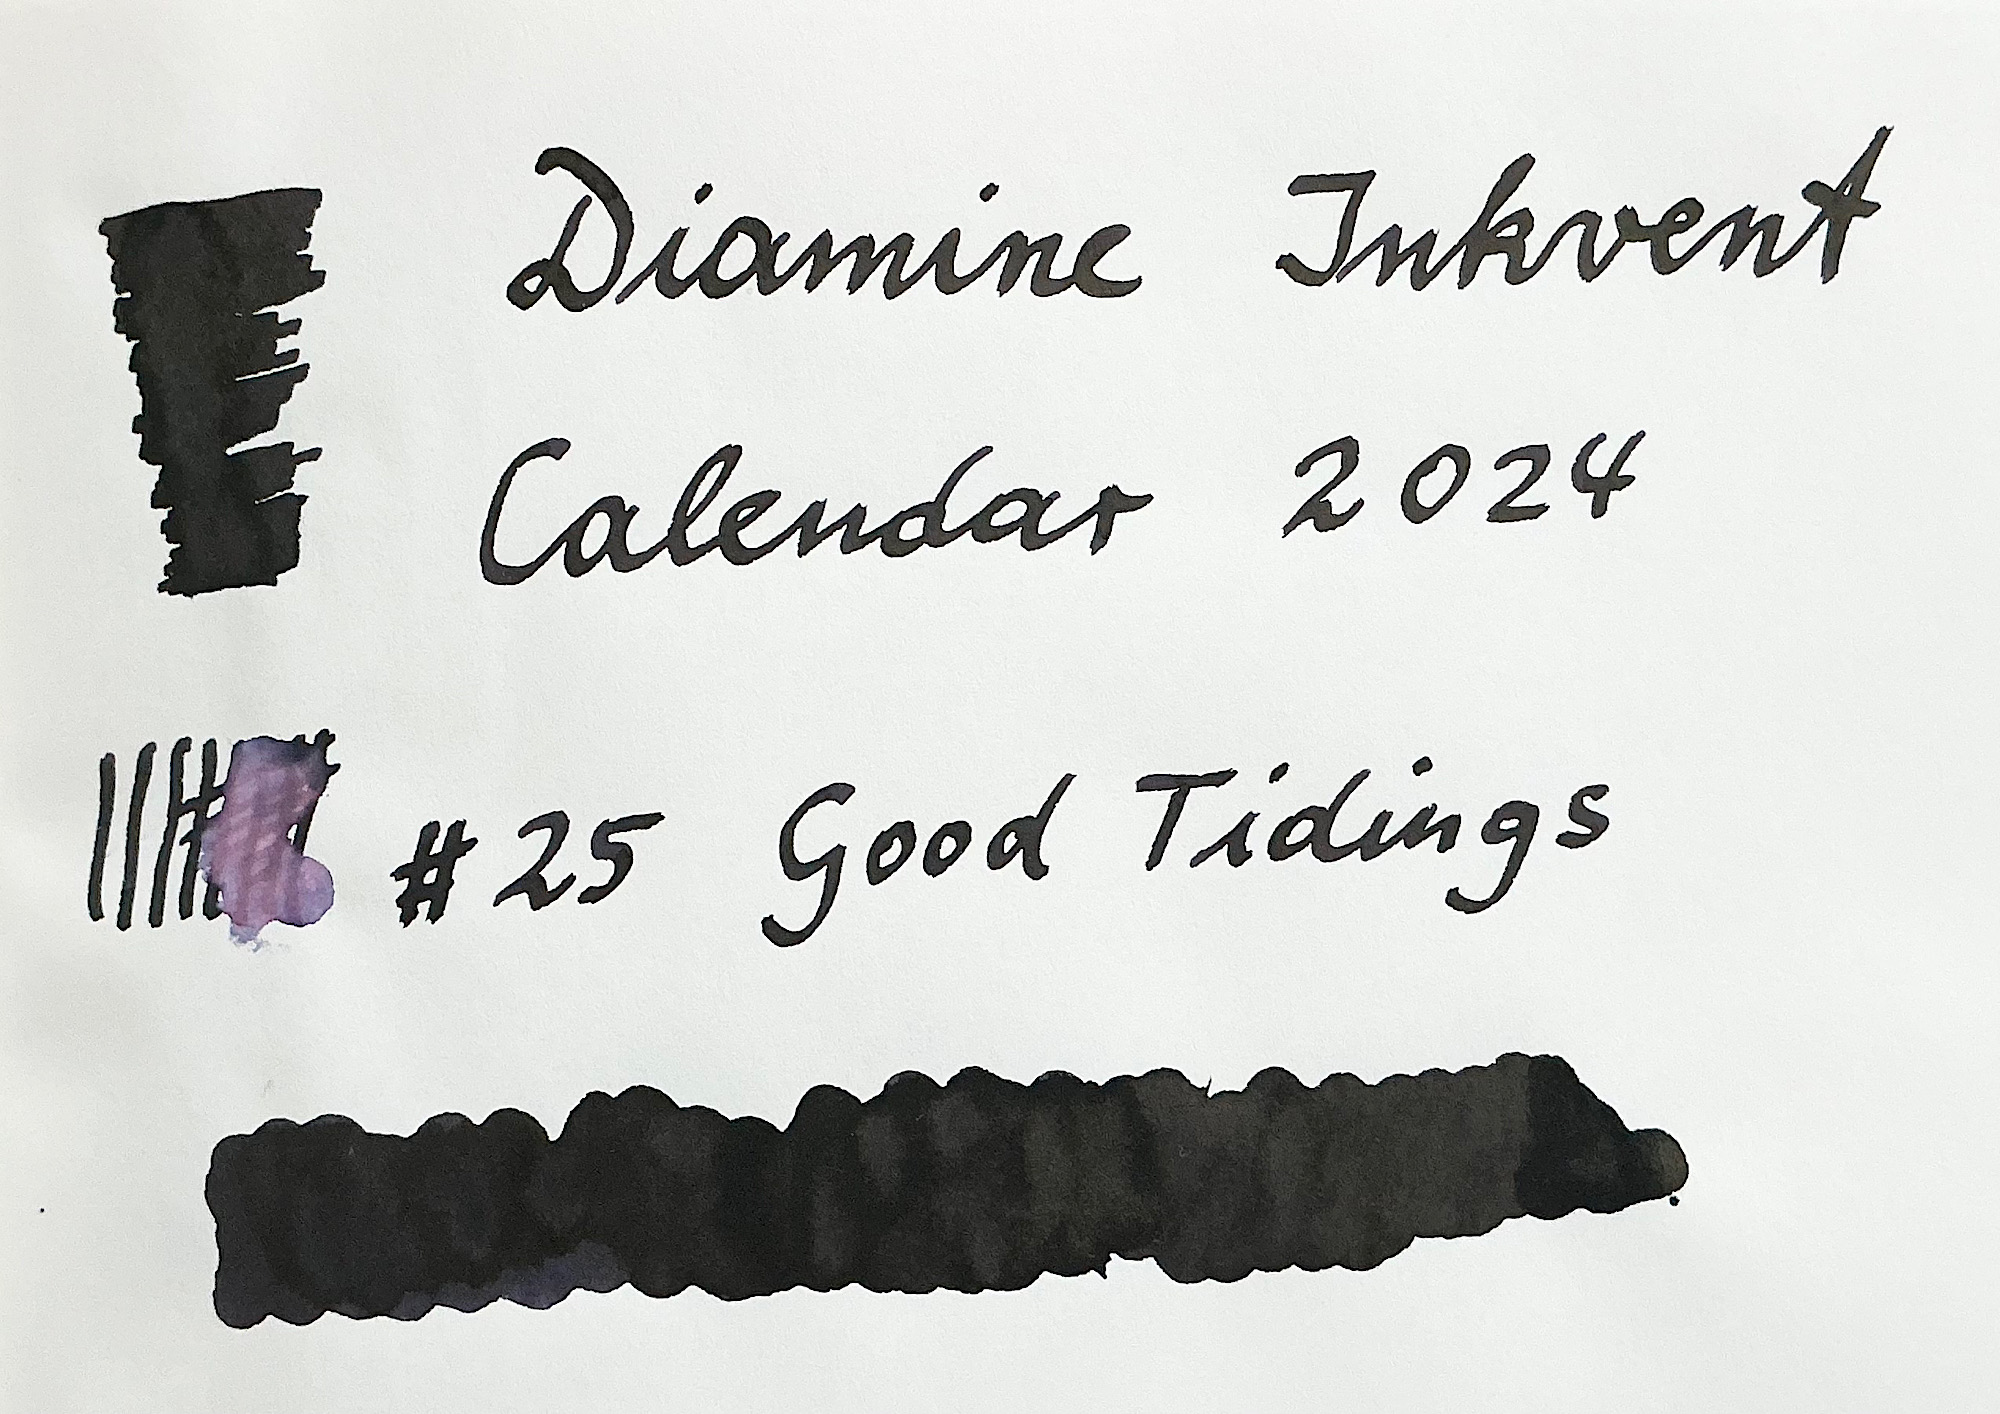 Diamine Inkvent
Calendar 2024
#25 Good Tidings